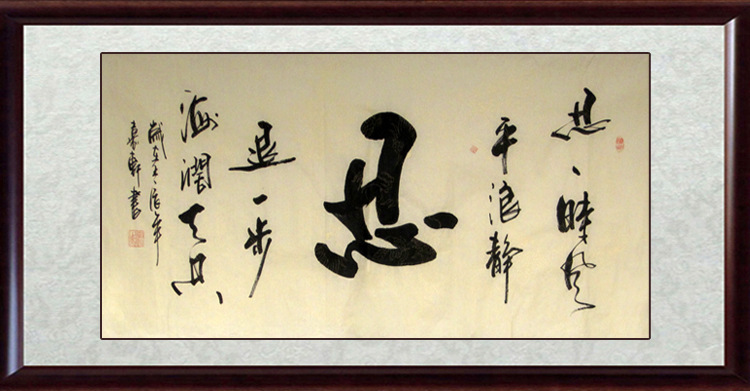 忍一時風
平浪靜
忍
退一步
海濶天空
歲在壬辰年
軒書